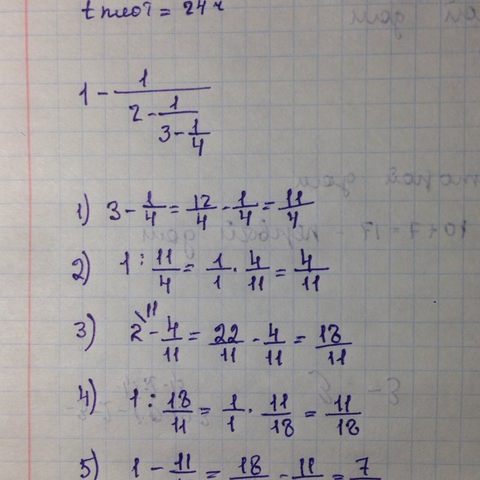 t плот = 24 ч
1 - 1/(2 - 1/(3 - 1/4))
1) 3 - 1/4 = 12/4 - 1/4 = 11/4
2) 1 : 11/4 = 1/1 · 4/11 = 4/11
3) 2\11 - 4/11 = 22/11 - 4/11 = 18/11
4) 1 : 18/11 = 1/1 · 11/18 = 11/18
5) 1 - 11 = 18 - 11 = 7